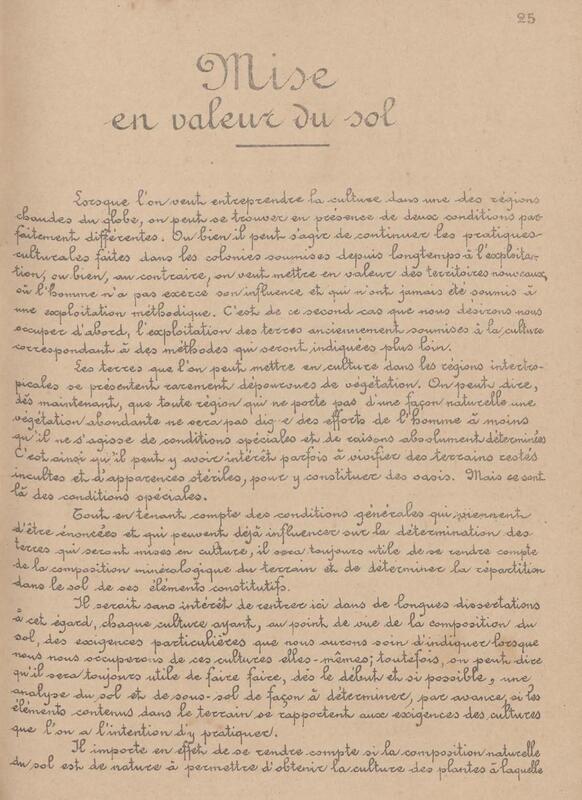 25
Mise
en valeur du sol
Lorsque l'on veut entreprendre la culture dans une des régions
chaudes du globe, on peut se trouver en présence de deux conditions par-
faitement différentes. Ou bien il peut s'agir de continuer les pratiques
culturales faites dans les colonies soumises depuis longtemps à l'exploita-
tion; ou bien, au contraire, on veut mettre en valeur des territoires nouveaux
où l'homme n'a pas exercé son influence et qui n'ont jamais été soumis à
une exploitation méthodique. C'est de ce second cas que nous désirons nous
occuper d'abord, l'exploitation des terres anciennement soumises à la culture
correspondant à des méthodes qui seront indiquées plus loin.
Les terres que l'on peut mettre en culture dans les régions intertro-
picales se présentent rarement dépourvues de végétation. On peut dire,
dès maintenant, que toute région qui ne porte pas d'une façon naturelle une
végétation abondante ne sera pas dig e des efforts de l'homme à moins
qu'il ne s'agisse de conditions spéciales et de raisons absolument déterminées
C'est ainsi qu'il peut y avoir intérêt parfois à vivifier des terrains restés
incultes et d'apparences stériles, pour y constituer des oasis. Mais ce sont
là des conditions spéciales.
Tout en tenant compte des conditions générales qui viennent
d'être énoncées et qui peuvent déjà influencer sur la détermination des
terres qui seront mises en culture, il sera toujours utile de se rendre compte
de la composition minéralogique du terrain et de déterminer la répartition
dans le sol de ses éléments constitutifs.
Il serait sans intérêt de rentrer ici dans de longues dissertations
à cet égard, chaque culture ayant, au point de vue de la composition du
sol, des exigences particulières que nous aurons soin d'indiquer lorsque
nous nous occuperons de ces cultures elles-mêmes; toutefois, on peut dire
qu'il sera toujours utile de faire faire, dès le début et si possible, une
analyse du sol et de sous-sol de façon à déterminer, par avance, si les
éléments contenus dans le terrain se rapportent aux exigences des cultures
que l'on a l'intention d'y pratiquer.
Il importe en effet de se rendre compte si la composition naturelle
du sol est de nature à permettre d'obtenir la culture des plantes à laquelle